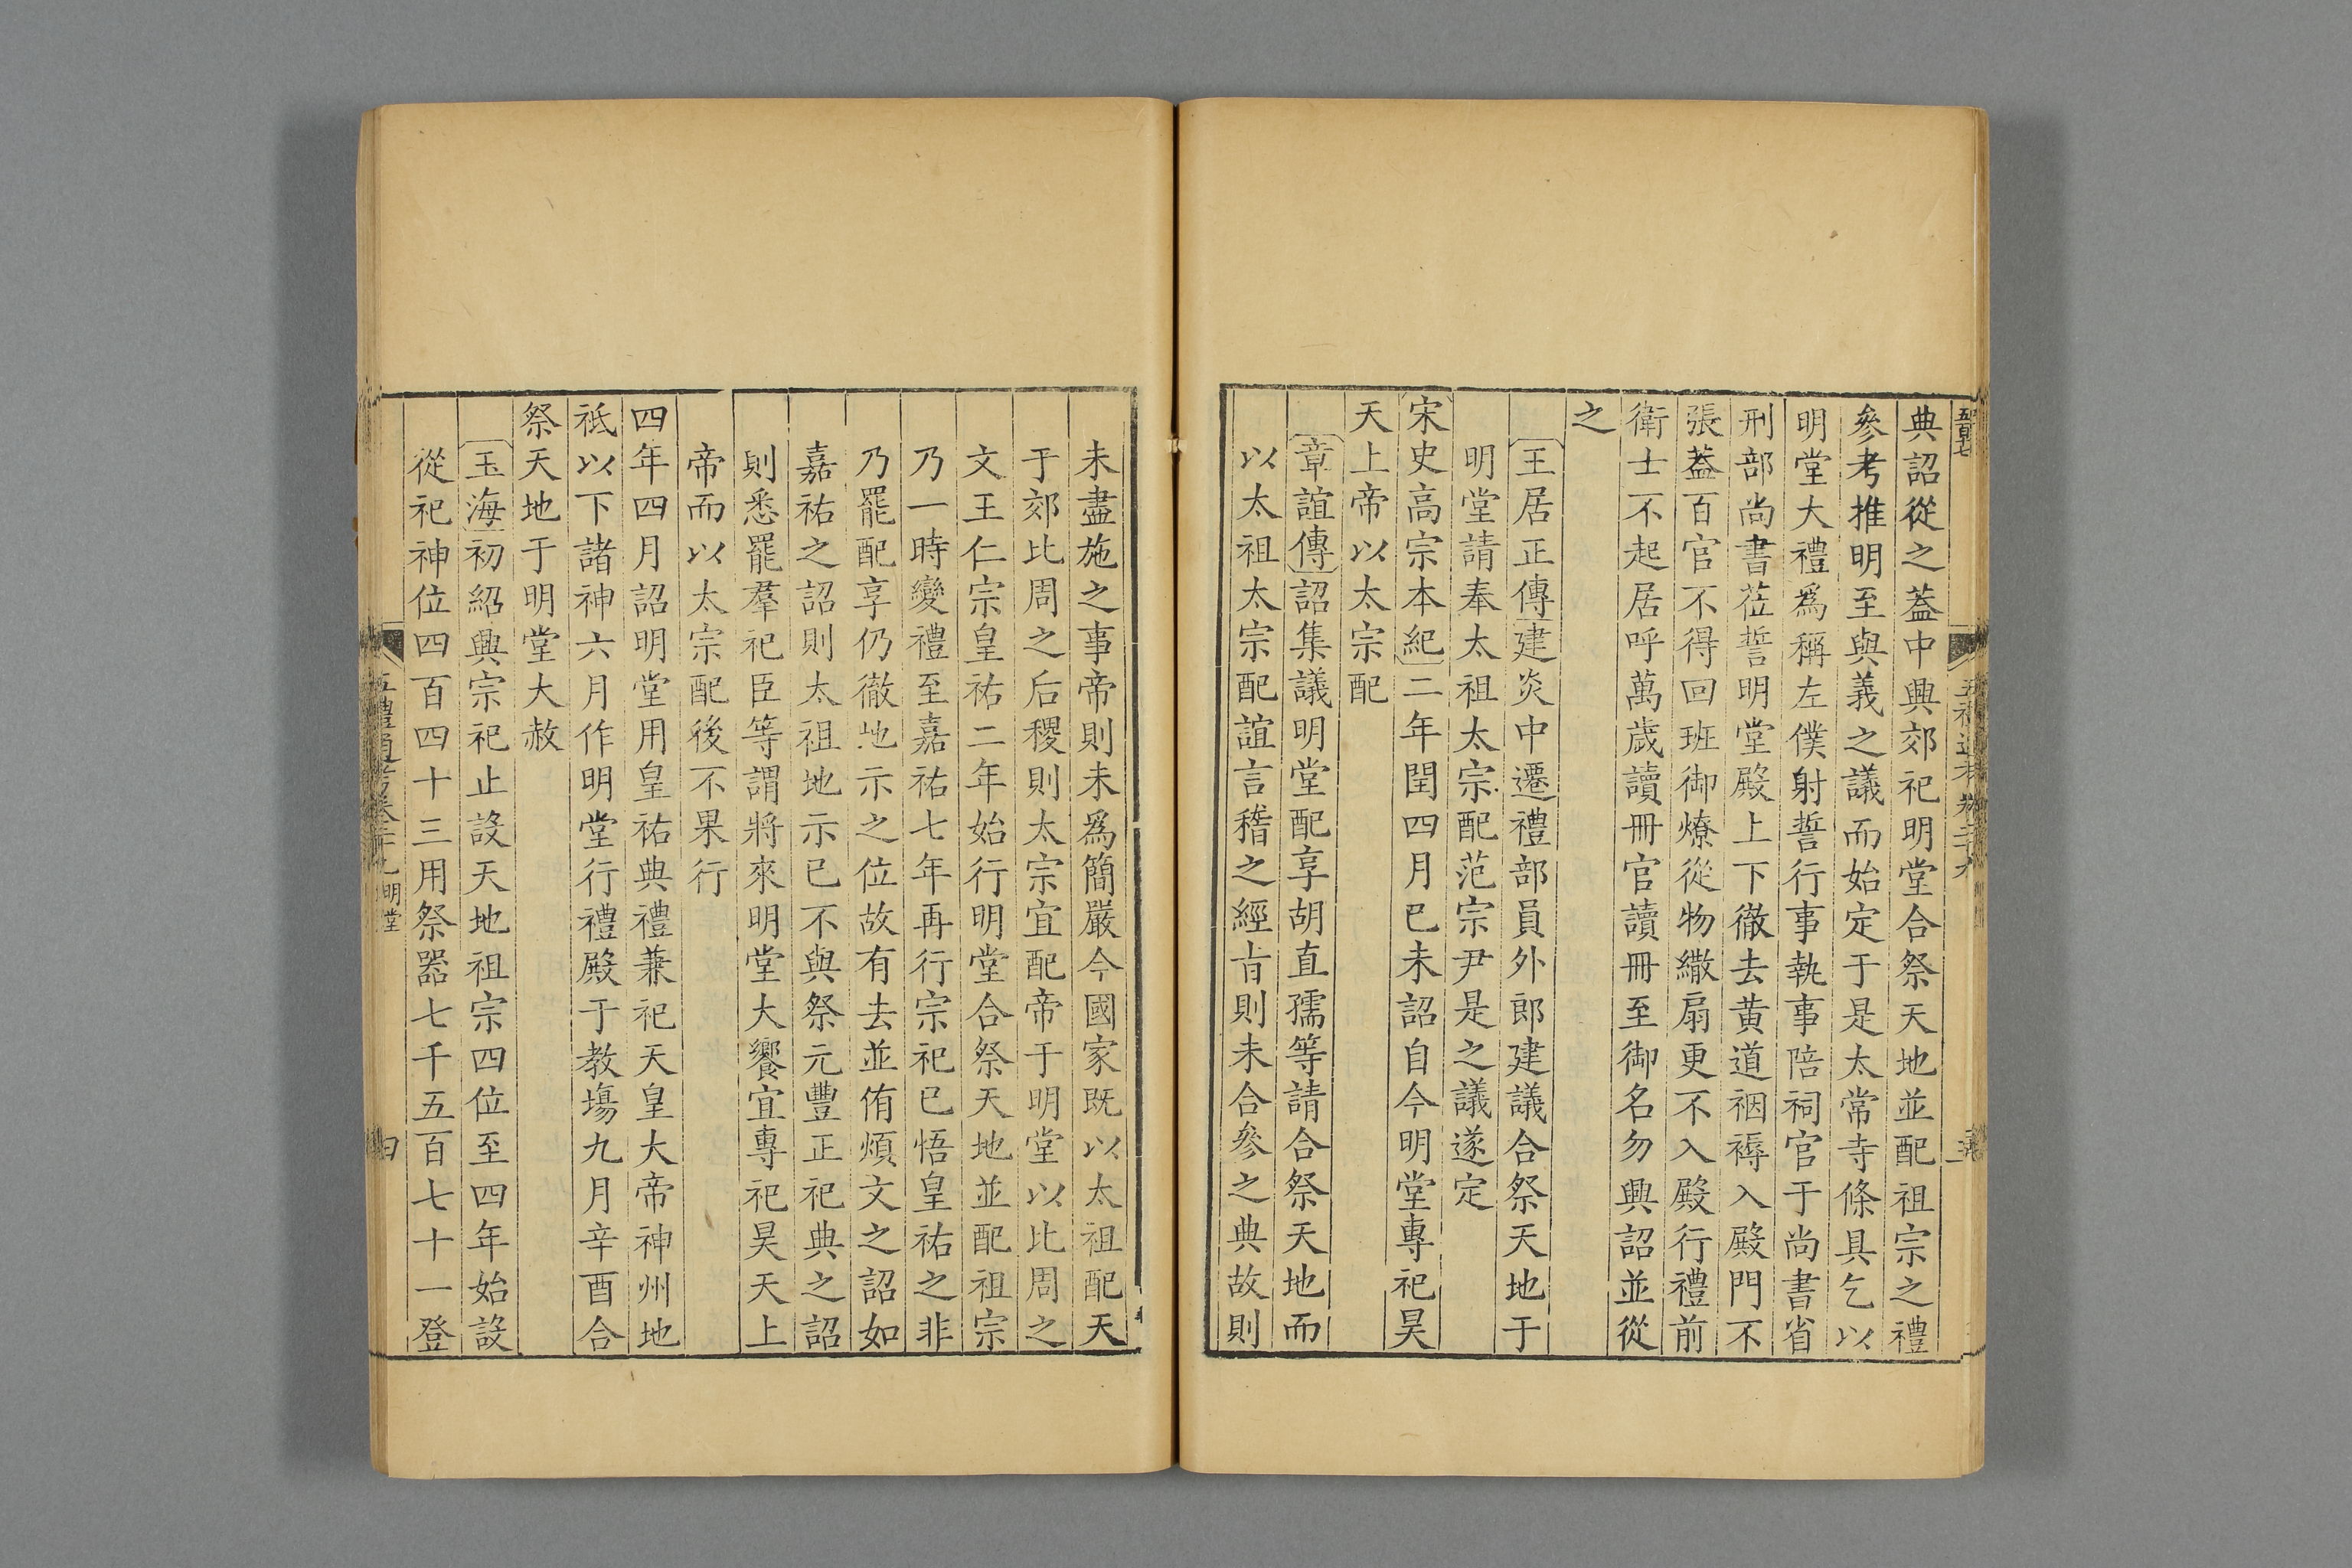 典詔從之蓋中興郊祀明堂合祭天地並配祖宗之禮
參考推明至與義之議而始定于是太常寺條具乞以
明堂大禮爲稱左僕射誓行事執事陪祠官于尚書省
刑部尚書莅誓明堂殿上下徹去黄道裀褥入殿門不
張蓋百官不得回班御燎從物繖扇更不入殿行禮前
衛士不起居呼萬歲讀冊官讀冊至御名勿興詔並從
之
王居正傳建炎中遷禮部員外郎建議合祭天地于
明堂請奉太祖太宗配范宗尹是之議遂定
宋史高宗本紀二年閏四月已未詔自今明堂專祀昊
天上帝以太宗配
章誼傳詔集議明堂配享胡直孺等請合祭天地而
以太祖太宗配誼言稽之經㫖則未合參之典故則
未盡施之事帝則未爲簡嚴今國家既以太祖配天
于郊比周之后稷則太宗宜配帝于明堂以比周之
文王仁宗皇祐二年始行明堂合祭天地並配祖宗
乃一時變禮至嘉祐七年再行宗祀已悟皇祐之非
乃罷配享仍徹地示之位故有去並侑煩文之詔如
嘉祐之詔則太祖地示已不與祭元豐正祀典之詔
則悉罷羣祀臣等謂將來明堂大饗宜專祀昊天上
帝而以太宗配後不果行
四年四月詔明堂用皇祐典禮兼祀天皇大帝神州地
祗以下諸神六月作明堂行禮殿于教場九月辛酉合
祭天地于明堂大赦
玉海初紹興宗祀止設天地祖宗四位至四年始設
從祀神位四百四十三用祭器七千五百七十一登
五禮通考卷二十九 明堂